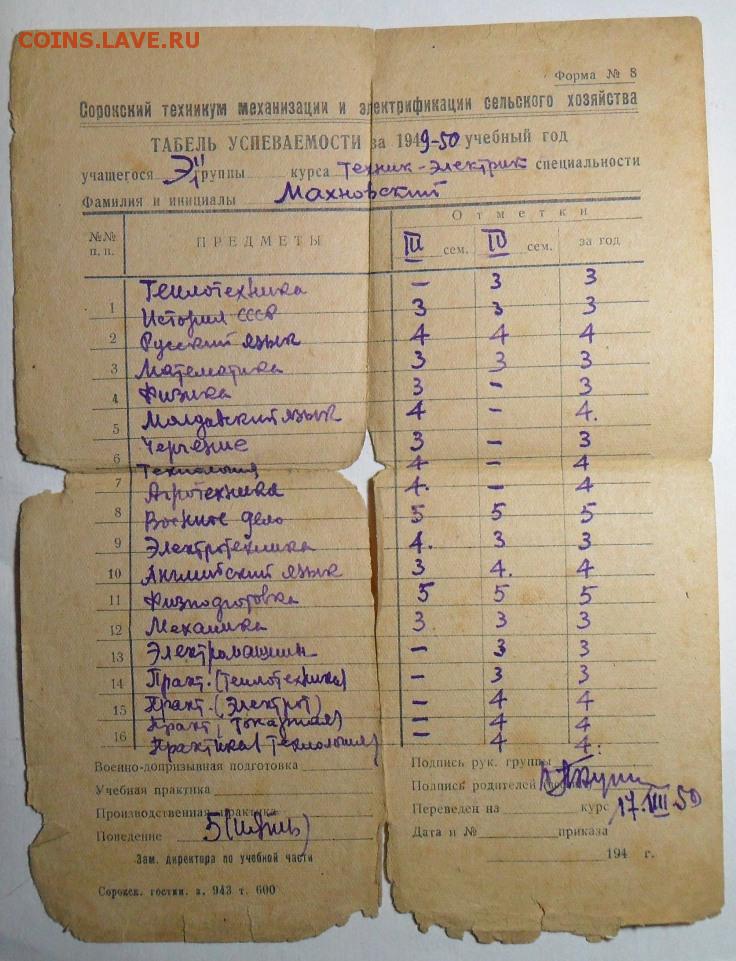 COINS.LAVE.RU
Форма № 8
Сорокский техникум механизации и электрификации сельского хозяйства
ТАБЕЛЬ УСПЕВАЕМОСТИ за 1949-50 учебный год
учащегося Э"1 группы курса Техник-электрик специальности
Фамилия и инициалы Махновский
№№ п. п. ПРЕДМЕТЫ Отметки
III сем. IV сем. за год
Теплотехника - 3 3
1 История СССР 3 3 3
2 Русский язык 4 4 4
3 Математика 3 3 3
4 Физика 3 - 3
5 Молдавский язык 4 - 4.
Черчение 3 - 3
6 Технология 4 - 4
7 Агротехника 4. - 4
8 Военное дело 5 5 5
9 Электротехника 4. 3 3
10 Английский язык 3 4. 4
11 Физподготовка 5 5 5
12 Механика 3 3 3
13 Электромашин - 3 3
14 Практ. (теплотехника) - 3 3
15 Практ. (Электрот) - 4 4
Практ. (токарная) - 4 4
16 Практика (Технология) - 4 4.
Военно-допризывная подготовка
Учебная практика
Производственная практика
Поведение 5
Зам. директора по учебной части
Сорокск. гостип. з. 943 т. 600
Подпись рук. группы
Подпись родителей
Переведен на курс 17.VIII.50
Дата и № приказа
194 г.